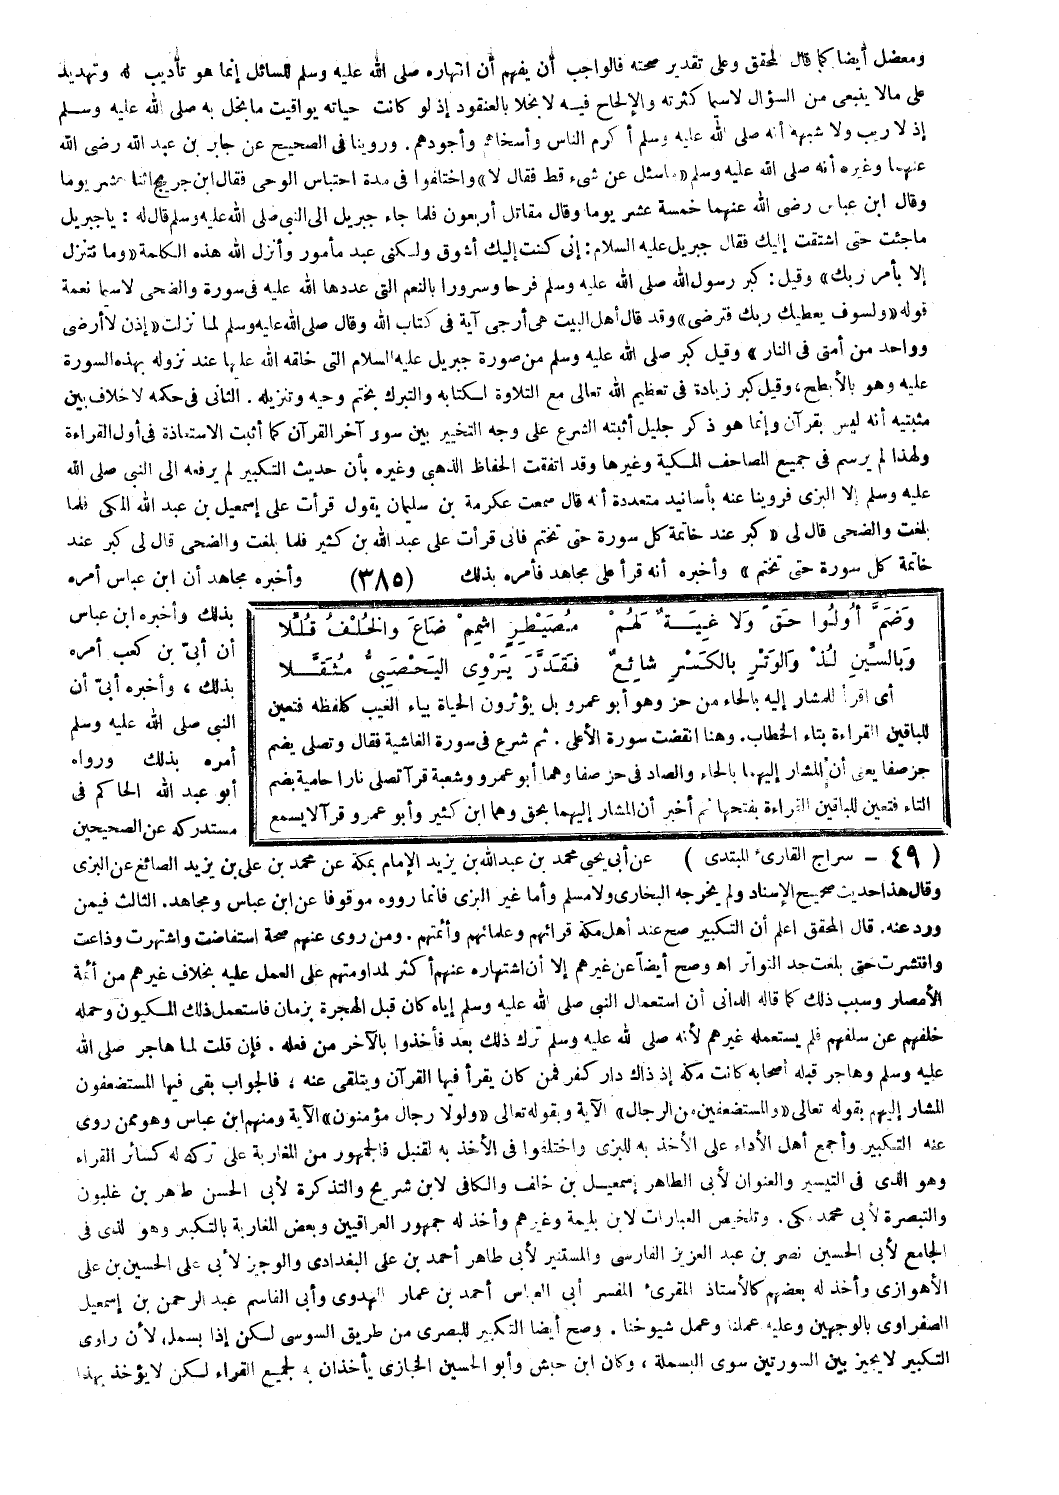 ومعضل أيضا كما قال المحقق وعلى تقدير صحته فالواجب أن يفهم أن انتهاره صلى الله عليه وسلم للسائل إنما هو تأديب له وتهديد
على مالا ينبغى من السؤال لاسيما كثرته والإلحاح فيه لا بخلا بالعنقود إذ لو كانت حياته يواقيت ما بخل به صلى الله عليه وسلم
إذ لا ريب ولا شبهة أنه صلى الله عليه وسلم أكرم الناس وأسخاهم وأجودهم . وروينا فى الصحيح عن جابر بن عبد الله رضى الله
عنهما وغيره أنه صلى الله عليه وسلم «ماسئل عن شىء قط فقال لا» واختلفوا فى مدة احتباس الوحى فقال ابن جريج اثنا عشر يوما
وقال ابن عباس رضى الله عنهما خمسة عشر يوما وقال مقاتل أربعون فلما جاء جبريل الى النبى صلى الله عليه وسلم قال له : ياجبريل
ماجئت حتى اشتقت إليك فقال جبريل عليه السلام : إنى كنت إليك أشوق ولكنى عبد مأمور وأنزل الله هذه الكلمة «وما نتنزل
إلا بأمر ربك» وقيل : كبر رسول الله صلى الله عليه وسلم فرحا وسرورا بالنعم التى عددها الله عليه فى سورة والضحى لاسيما نعمة
قوله «ولسوف يعطيك ربك فترضى» وقد قال أهل البيت هى أرجى آية فى كتاب الله وقال صلى الله عليه وسلم لما نزلت «إذن لا أرضى
وواحد من أمتى فى النار» وقيل كبر صلى الله عليه وسلم من صورة جبريل عليه السلام التى خلقه الله عليها عند نزوله بهذه السورة
عليه وهو بالأبطح ، وقيل كبر زيادة فى تعظيم الله تعالى مع التلاوة لكتابه والتبرك بختم وحيه وتنزيله . الثانى فى حكمه لاخلاف بين
مثبتيه أنه ليس بقرآن وإنما هو ذكر جليل أثبته الشرع على وجه التخيير بين سور آخر القرآن كما أثبت الاستعاذة فى أول القراءة
ولهذا لم يرسم فى جميع المصاحف المكية وغيرها وقد اتفقت الحفاظ الذهبى وغيره بأن حديث التكبير لم يرفعه الى النبى صلى الله
عليه وسلم إلا البزى فروينا عنه بأسانيد متعددة أنه قال سمعت عكرمة بن سليمان يقول قرأت على إسمعيل بن عبد الله المكى فلما
بلغت والضحى قال لى « كبر عند خاتمة كل سورة حتى تختم فانى قرأت على عبد الله بن كثير فلما بلغت والضحى قال لى كبر عند
خاتمة كل سورة حتى تختم » وأخبره أنه قرأ على مجاهد فأمره بذلك (٣٨٥) وأخبره مجاهد أن ابن عباس أمره
بذلك وأخبره ابن عباس
أن أبىّ بن كعب أمره
بذلك ، وأخبره أبىّ أن
النبى صلى الله عليه وسلم
أمره بذلك ورواه
أبو عبد الله الحاكم فى
مستدركه عن الصحيحين
وَضَمَّ أُولُوا حَقٍّ وَلا غِيَةٌ لَهُمْ مُصَيْطِرٍ اشْمِمْ ضَاعَ وَالخُلْفُ قُلِّلَا
وَبِالسِّينِ لُذْ وَالوَتْرِ بِالكَسْرِ شَائِعٌ فَقَدَّرَ يَرْوِى اليَحْصَبِىُّ مُثَقَّلا
أى اقرأ للمشار إليه بالحاء من حز وهو أبو عمرو بل يؤثرون الحياة بياء الغيب كلفظه فتعين
للباقين القراءة بتاء الخطاب . وهنا انقضت سورة الأعلى . ثم شرع فى سورة الغاشية فقال وتصلى يضم
حز صفا يعنى أن المشار إليهما بالحاء والصاد فى حز صفا وهما أبو عمرو وشعبة قرآ تصلى نارا حامية بضم
التاء فتعين للباقين القراءة بفتحها ثم أخبر أن المشار إليهما بحق وهما ابن كثير وأبو عمرو قرآ لايسمع
( ٤٩ - سراج القارئ المبتدى ) عن أبى يحيى محمد بن عبد الله بن يزيد الإمام بمكة عن محمد بن على بن يزيد الصائغ عن البزى
وقال هذا حديث صحيح الإسناد ولم يخرجه البخارى ولا مسلم وأما غير البزى فانما رووه موقوفا عن ابن عباس ومجاهد. الثالث فيمن
ورد عنه. قال المحقق اعلم أن التكبير صح عند أهل مكة قرائهم وعلمائهم وأئمتهم . ومن روى عنهم صحة استفاضت واشتهرت وذاعت
وانتشرت حتى بلغت حد التواتر اه وصح أيضاً عن غيرهم إلا أن اشتهاره عنهم أكثر لمداومتهم على العمل عليه بخلاف غيرهم من أئمة
الأمصار وسبب ذلك كما قاله الدانى أن استعمال النبى صلى الله عليه وسلم إياه كان قبل الهجرة بزمان فاستعمل ذلك المكيون وحمله
خلفهم عن سلفهم فلم يستعمله غيرهم لأنه صلى الله عليه وسلم ترك ذلك بعد فأخذوا بالآخر من فعله . فإن قلت لما هاجر صلى الله
عليه وسلم وهاجر قبله أصحابه كانت مكة إذ ذاك دار كفر فمن كان يقرأ فيها القرآن ويتلقى عنه ، فالجواب بقى فيها المستضعفون
المشار إليهم بقوله تعالى «والمستضعفين من الرجال» الآية وبقوله تعالى «ولولا رجال مؤمنون» الآية ومنهم ابن عباس وهو ممن روى
عنه التكبير وأجمع أهل الأداء على الأخذ به للبزى واختلفوا فى الأخذ به لقنبل فالجمهور من المغاربة على تركه له كسائر القراء
وهو الذى فى التيسير والعنوان لأبى الطاهر إسمعيل بن خلف والكافى لابن شريح والتذكرة لأبى الحسن طاهر بن غلبون
والتبصرة لأبى محمد مكى . وتلخيص العبارات لابن بليمة وغيرهم وأخذ له جمهور العراقيين وبعض المغاربة بالتكبير وهو الذى فى
الجامع لأبى الحسين نصر بن عبد العزيز الفارسى والمستنير لأبى طاهر أحمد بن على البغدادى والوجيز لأبى على الحسين بن على
الأهوازى وأخذ له بعضهم كالأستاذ المقرئ المفسر أبى العباس أحمد بن عمار المهدوى وأبى القاسم عبد الرحمن بن إسمعيل
الصفراوى بالوجهين وعليه عملنا وعمل شيوخنا . وصح أيضا التكبير للبصرى من طريق السوسى لكن إذا بسمل لأن راوى
التكبير لايجيز بين السورتين سوى البسملة ، وكان ابن حبش وأبو الحسين الخبازى يأخذان به لجميع القراء لكن لايؤخذ بهذا